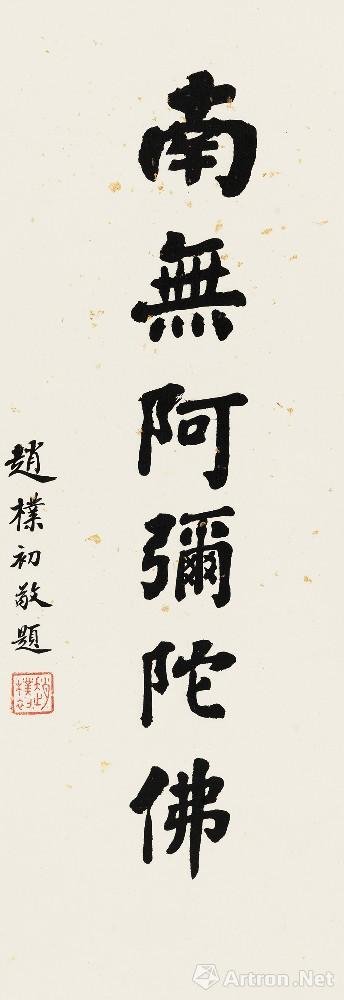 南無阿彌陀佛
趙樸初敬題
趙樸初
Artron.Net